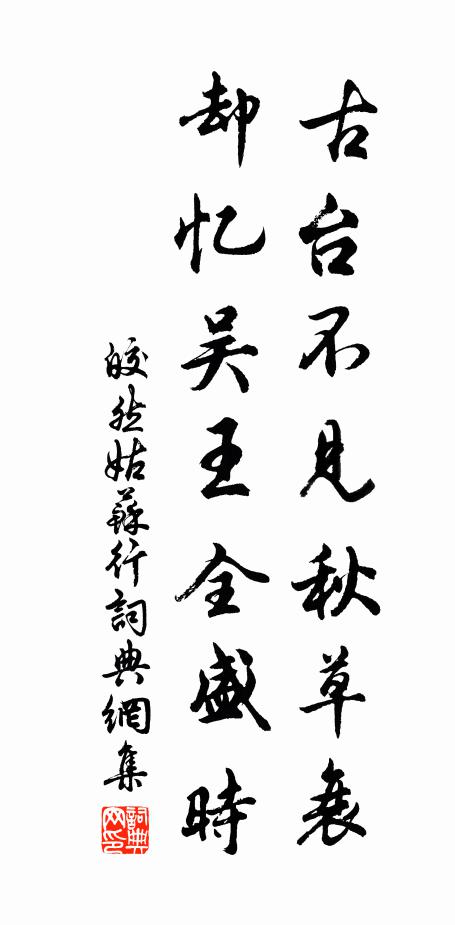 古台不见秋草衰
却忆吴王全盛時
皎然姑蘇行詞典網集
詞典网印